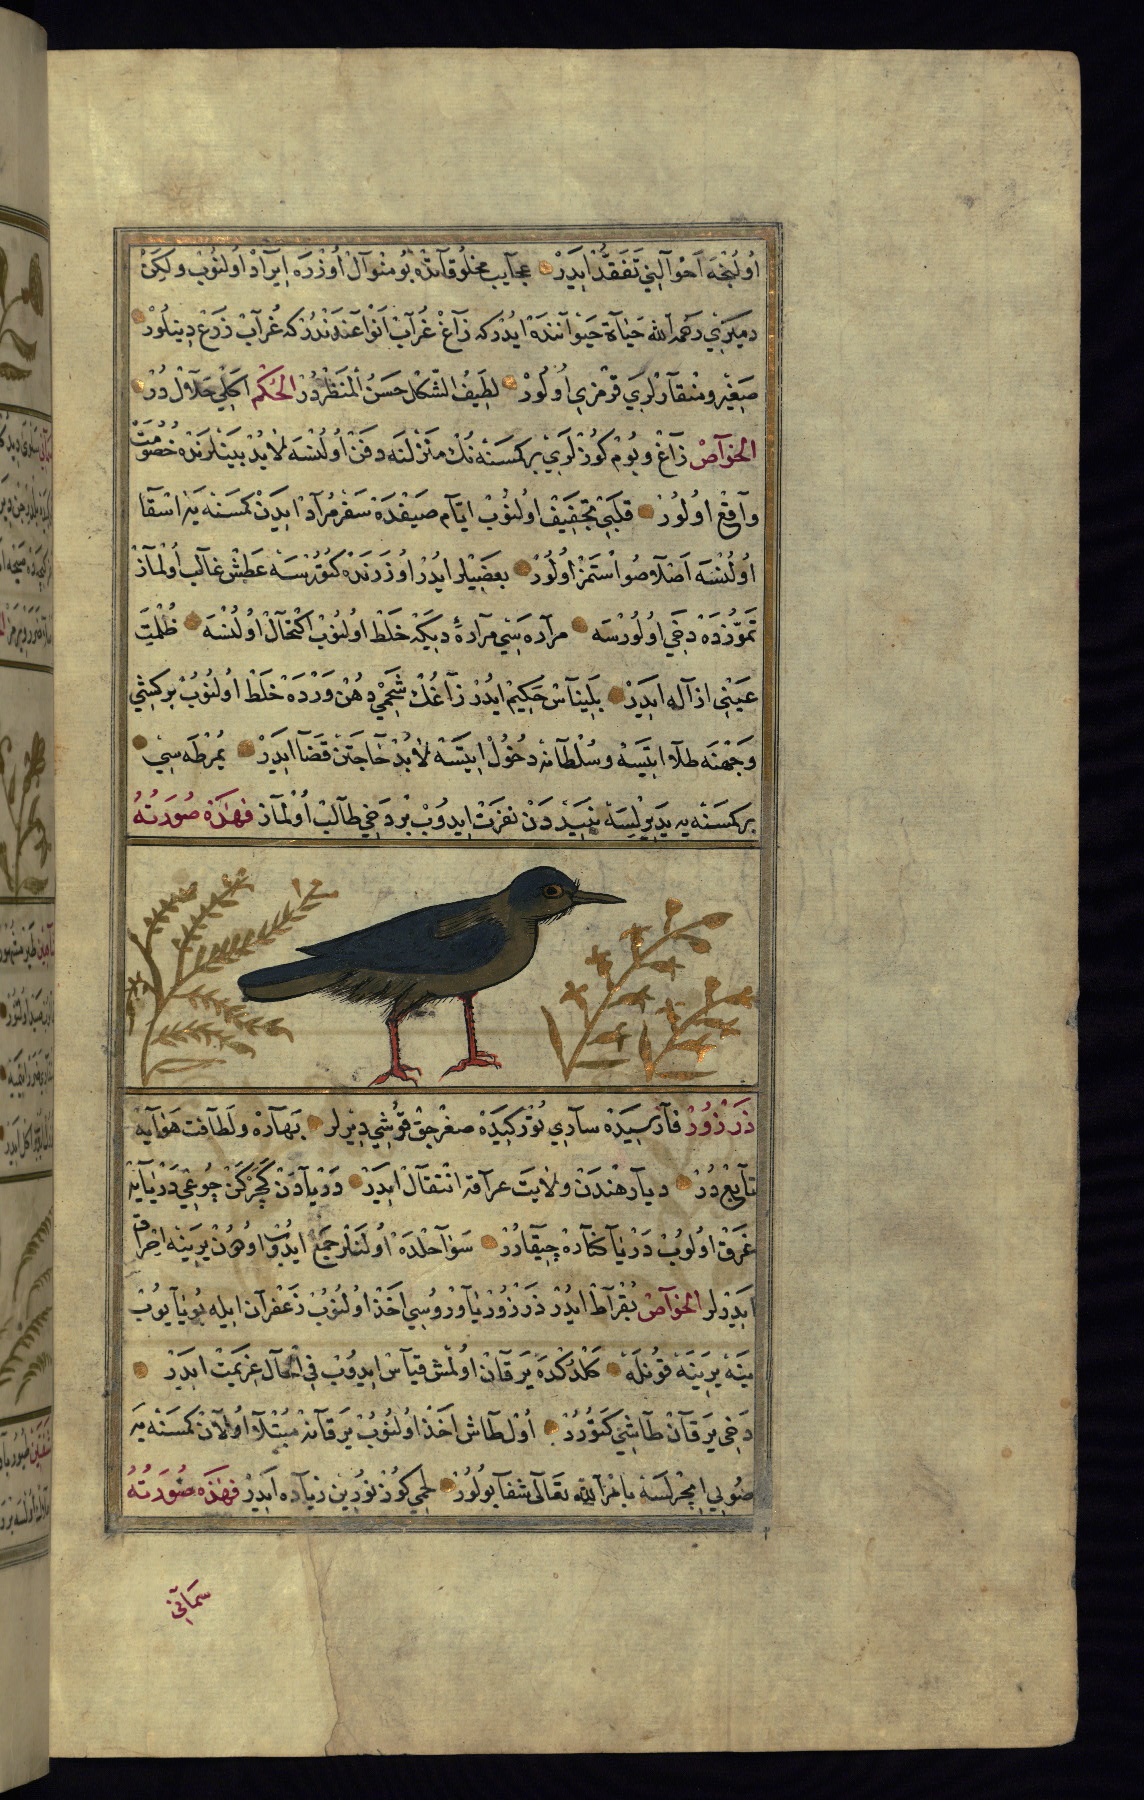 اولنجه احوالنی تفقد ایدر عجایب مخلوقاتده بو منوال اوزره ایراد اولنوب ولکن
دمیری رحمه الله حیاة حیوانندە ایدر که زاغ غراب انواعندندر که غراب زرع دینلور
صغیر و منقارلری قرمزی اولور لطیف الشکل حسن المنظردر الحکم اکلی حلال در
الخواص زاغ و بوم کوزلری برکمسنه نك منزلنه دفن اولنسه لابد بینلرنده خصومت
واقع اولور قلبی تجفیف اولنوب ایام صیفده سفر مراد ایدن کمسنه یه اسقا
اولنسه اصلا صو استمز اولور بعضیلر ایدر اوزرنده کتورسه عطش غالب اولماز
تموزده دخی اولورسه مراره سی مراره دیکه خلط اولنوب اکتحال اولنسه ظلمت
عینی ازاله ایدر بلیناس حکیم ایدر زاغك شحمی دهن ورده خلط اولنوب بر کشی
وجهنه طلا ایتسه و سلطانه دخول ایتسه لابد حاجتن قضا ایدر یمرطه سی
برکمسنه یه یدیرلسه نبیذدن نفرت ایدوب بر دخی طالب اولماز فهذه صورته
زرزور فارسیده ساری ترکیده صغرجق قوشی دیرلر بهاره ولطافت هوایه
تابع در دیار هندن ولایت عراقه انتقال ایدر دریادن کچرکن چوغی دریایه
غرق اولوب دریا کناره چیقارر سواحلده اولنلر جمع ایدوب اودون یرینه احراق
ایدرلر الخواص بقراط ایدر زرزور یاوروسی اخذ اولنوب زعفران ایله بویایوب
ینه یرینه قونله کلدکده یرقان اولمش قیاس ایدوب فی الحال عزیمت ایدر
دخی یرقان طاشی کتورر اول طاش اخذ اولنوب یرقانه مبتلا اولان کمسنه یه
صویی ایچرلسه بامر الله تعالی شفا بولور لحمی کوز نورین زیاده ایدر فهذه صورته
سمانی